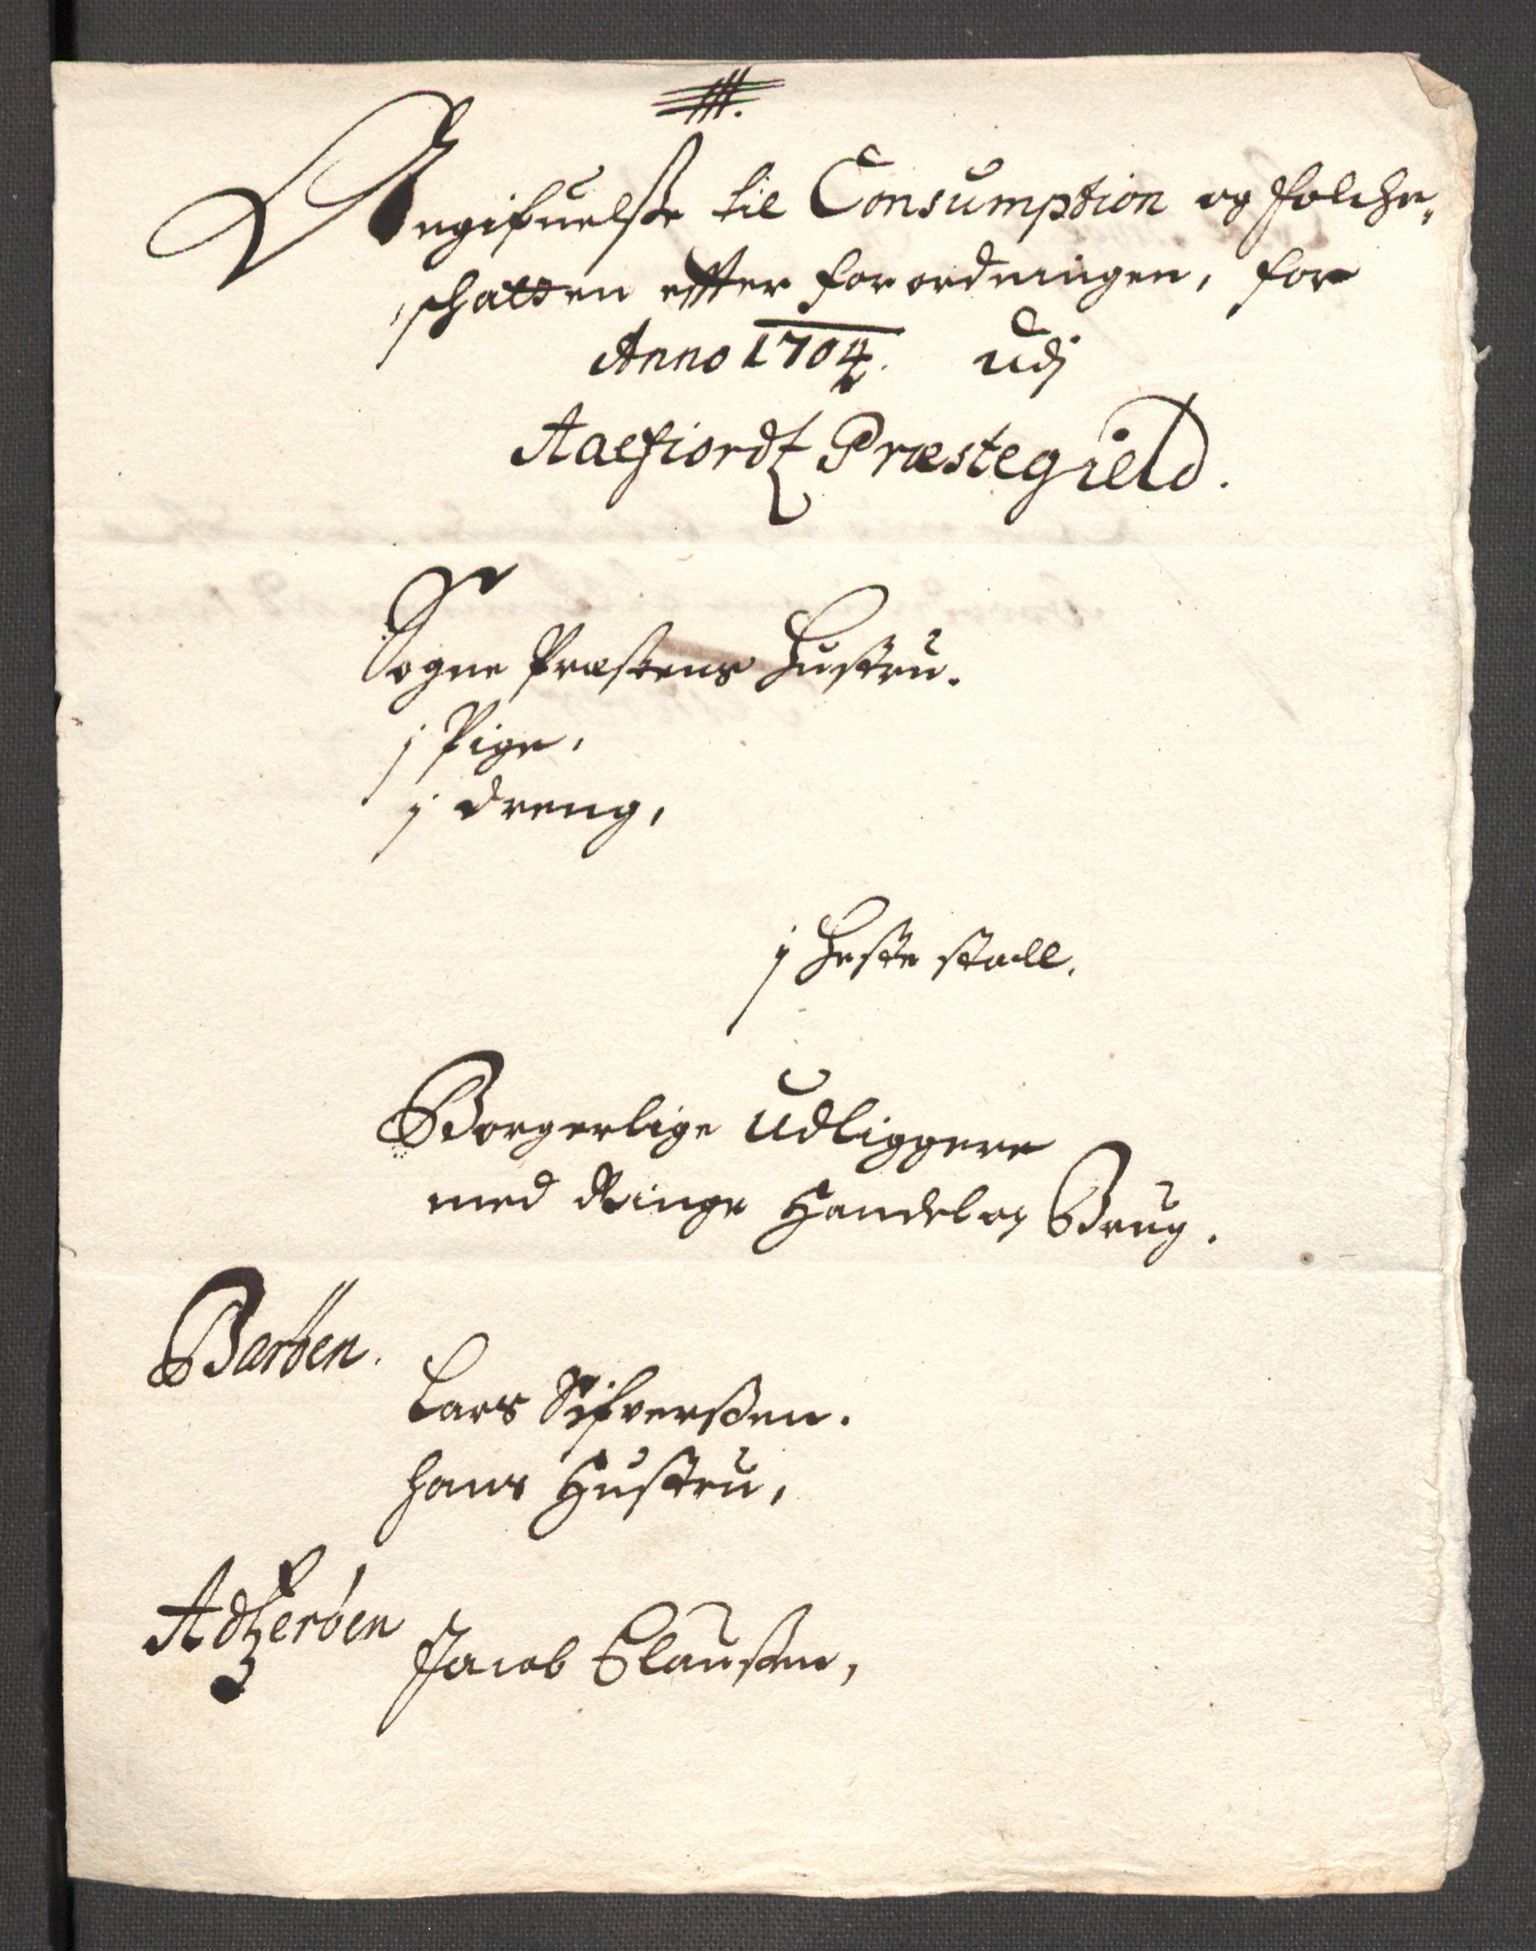 Angifuelße til Consumption og Folche„
schatten effter forordningen, for
Anno 1704. Udj
Aaefiordtz Præstegield.
Sogne Præstens Hustru.
j Pige,
j dreng,
j Heste stall.
Borgerlige Udliggere
med Ringe Handel og Brug.
Barøen.
Lars Sifverßen.
hans Hustru,
Adtzerøen Jacob Claußen,